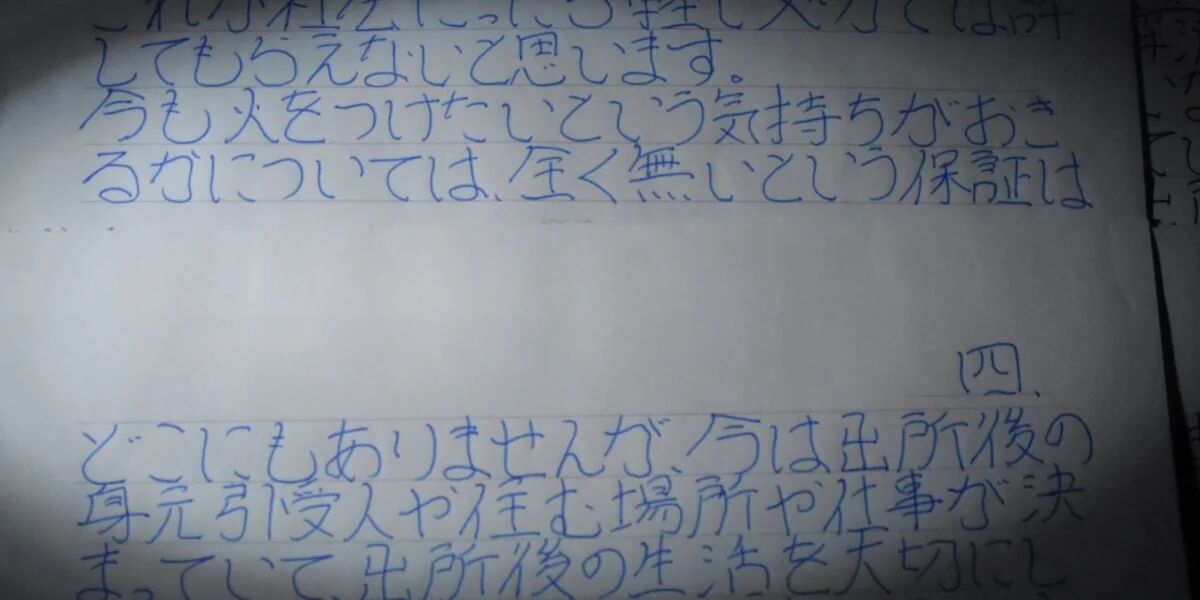 してもらえないと思います。
今も火をつけたいという気持ちがおき
るかについては、全く無いという保証は
四、
どこにもありませんが、今は出所後の
身元引受人や住む場所や仕事が決
まっていて、出所後の生活を大切にし